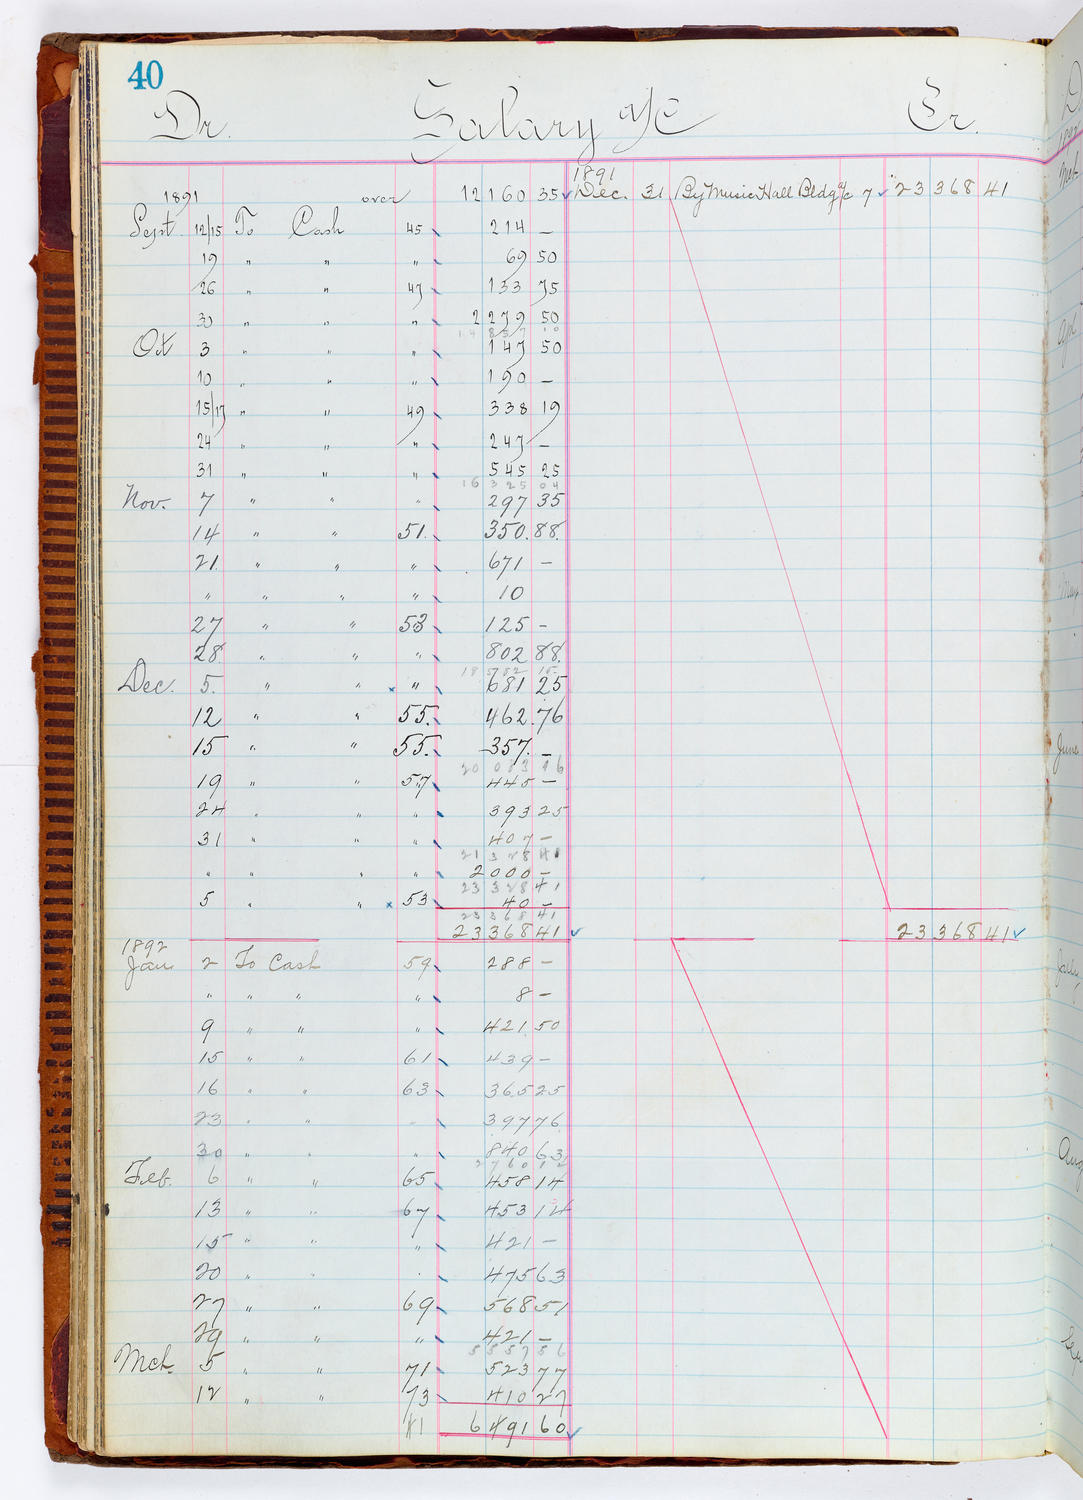 40
Dr. Salary a/c Cr.
1891 over 12160 35 1891 Dec. 31 By Music Hall Bldg a/c 7 23368 41
Sept. 12/15 To Cash 45 214 —
19 " " " 69 50
26 " " 47 133 75
30 " " " 2279 50
14857 10
Oct 3 " " " 147 50
10 " " " 190 —
15/17 " " 49 338 19
24 " " " 247 —
31 " " " 545 25
16325 04
Nov. 7 " " " 297 35
14 " " 51. 350. 88.
21. " " " 671 —
" " " " 10
27 " " 53 125 —
28. " " " 802 88.
18582 15
Dec. 5. " " " 681 25
12 " " 55. 462. 76
15 " " 55. 357. —
20083 16
19 " " 57 445 —
24 " " " 393 25
31 " " " 407 —
21328 41
" " " " 2000 —
23328 41
5 " " 53 40 —
23368 41
23368 41 23368 41
1892
Jan 2 To Cash 59 288 —
" " " " 8 —
9 " " " 421 50
15 " " 61 439 —
16 " " 63 365 25
23 " " " 397 76
30 " " " 840 63
2760 12
Feb. 6 " " 65 458 14
13 " " 67 453 14
15 " " " 421 —
20 " " " 475 63
27 " " 69 568 51
29 " " " 421 —
5557 56
Mch. 5 " " 71 523 77
12 " " 73 410 27
41 6491 60